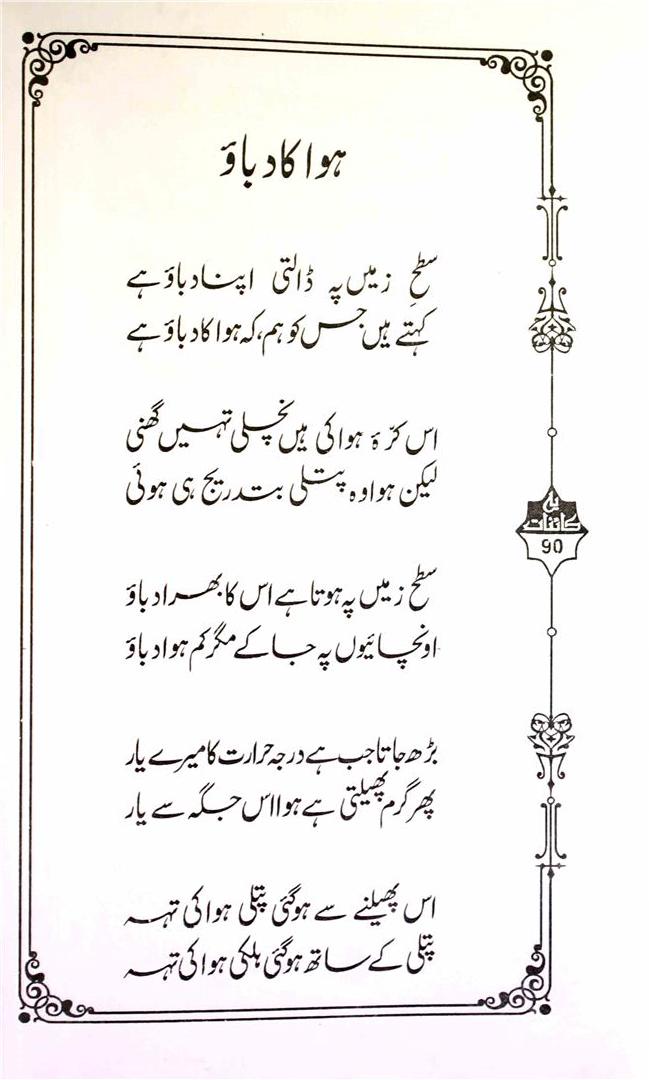 ہوا کا دباؤ
سطحِ زمیں پہ ڈالتی اپنا دباؤ ہے
کہتے ہیں جس کو ہم، کہ ہوا کا دباؤ ہے
اس کرّۂ ہوا کی ہیں نچلی تہیں گھنی
لیکن ہوا وہ پتلی بتدریج ہی ہوئی
سطح زمیں پہ ہوتا ہے اس کا بھرا دباؤ
اونچائیوں پہ جا کے مگر کم ہوا دباؤ
بڑھ جاتا جب ہے درجہ حرارت کا میرے یار
پھر گرم پھیلتی ہے ہوا اس جگہ سے یار
اس پھیلنے سے ہوگئی پتلی ہوا کی تہہ
پتلی کے ساتھ ہوگئی ہلکی ہوا کی تہہ
کائنات
90